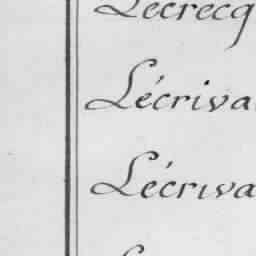 Lécrecq
Lécriva
Lécriva